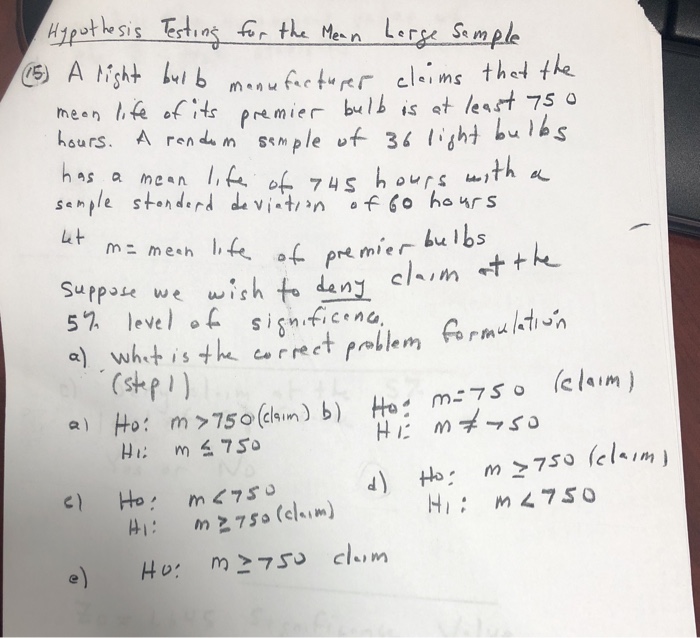 Hypothesis Testing for the Mean Large Sample
(15) A light bulb manufacturer claims that the
mean life of its premier bulb is at least 750
hours. A random sample of 36 light bulbs
has a mean life of 745 hours with a
sample standard deviation of 60 hours
Let m = mean life of premier bulbs
Suppose we wish to deny claim at the
5% level of significence.
a) What is the correct problem formulation
(step 1)
a) Ho: m > 750 (claim) b) Ho: m = 750 (claim)
H1: m ≤ 750 H1: m ≠ 750
c) Ho: m < 750 d) Ho: m ≥ 750 (claim)
H1: m ≥ 750 (claim) H1: m < 750
e) Ho: m ≥ 750 claim